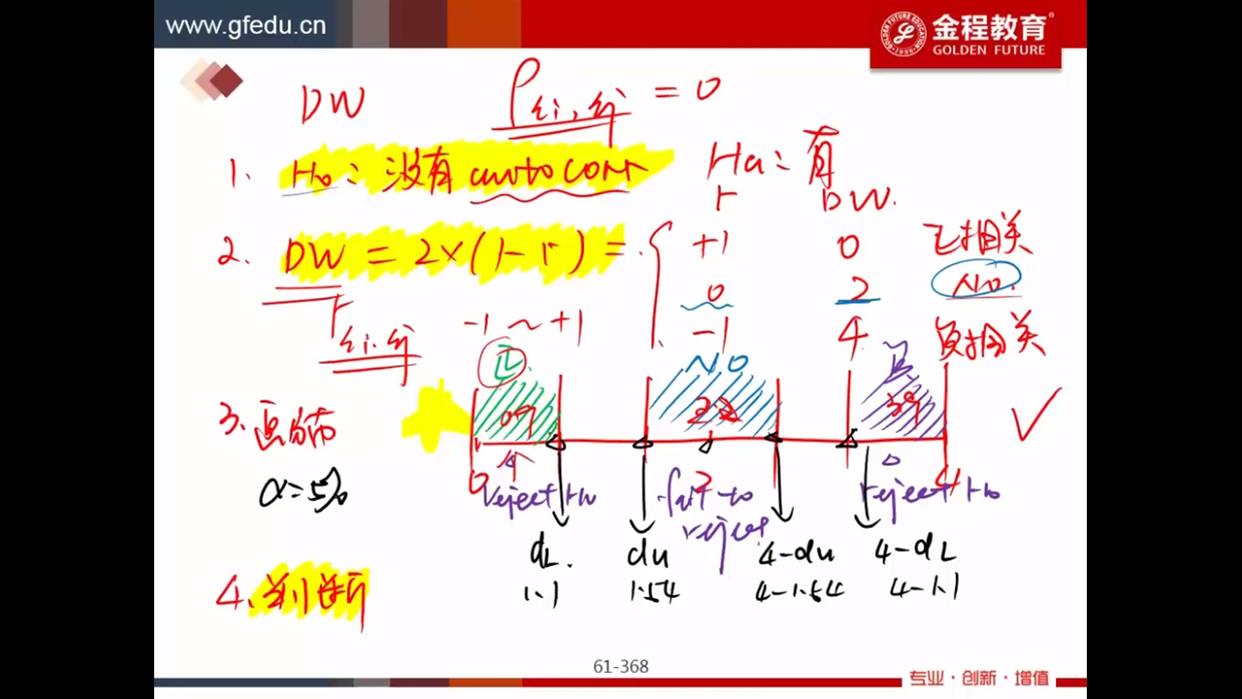 www.gfedu.cn
金程教育
GOLDEN FUTURE
DW ρεi,εj = 0
1. H0: 没有 auto corr Ha: 有
r DW.
2. DW = 2×(1-r) = +1 0 正相关
0 2 No.
-1 4 负相关
r εi,εj -1 ~ +1
正 NO 负
3. 画分布
0 2 4
α=5% reject H0 fail to reject reject H0
dL. du 4-du 4-dL
1.1 1.54 4-1.54 4-1.1
4. 判断
61-368
专业·创新·增值